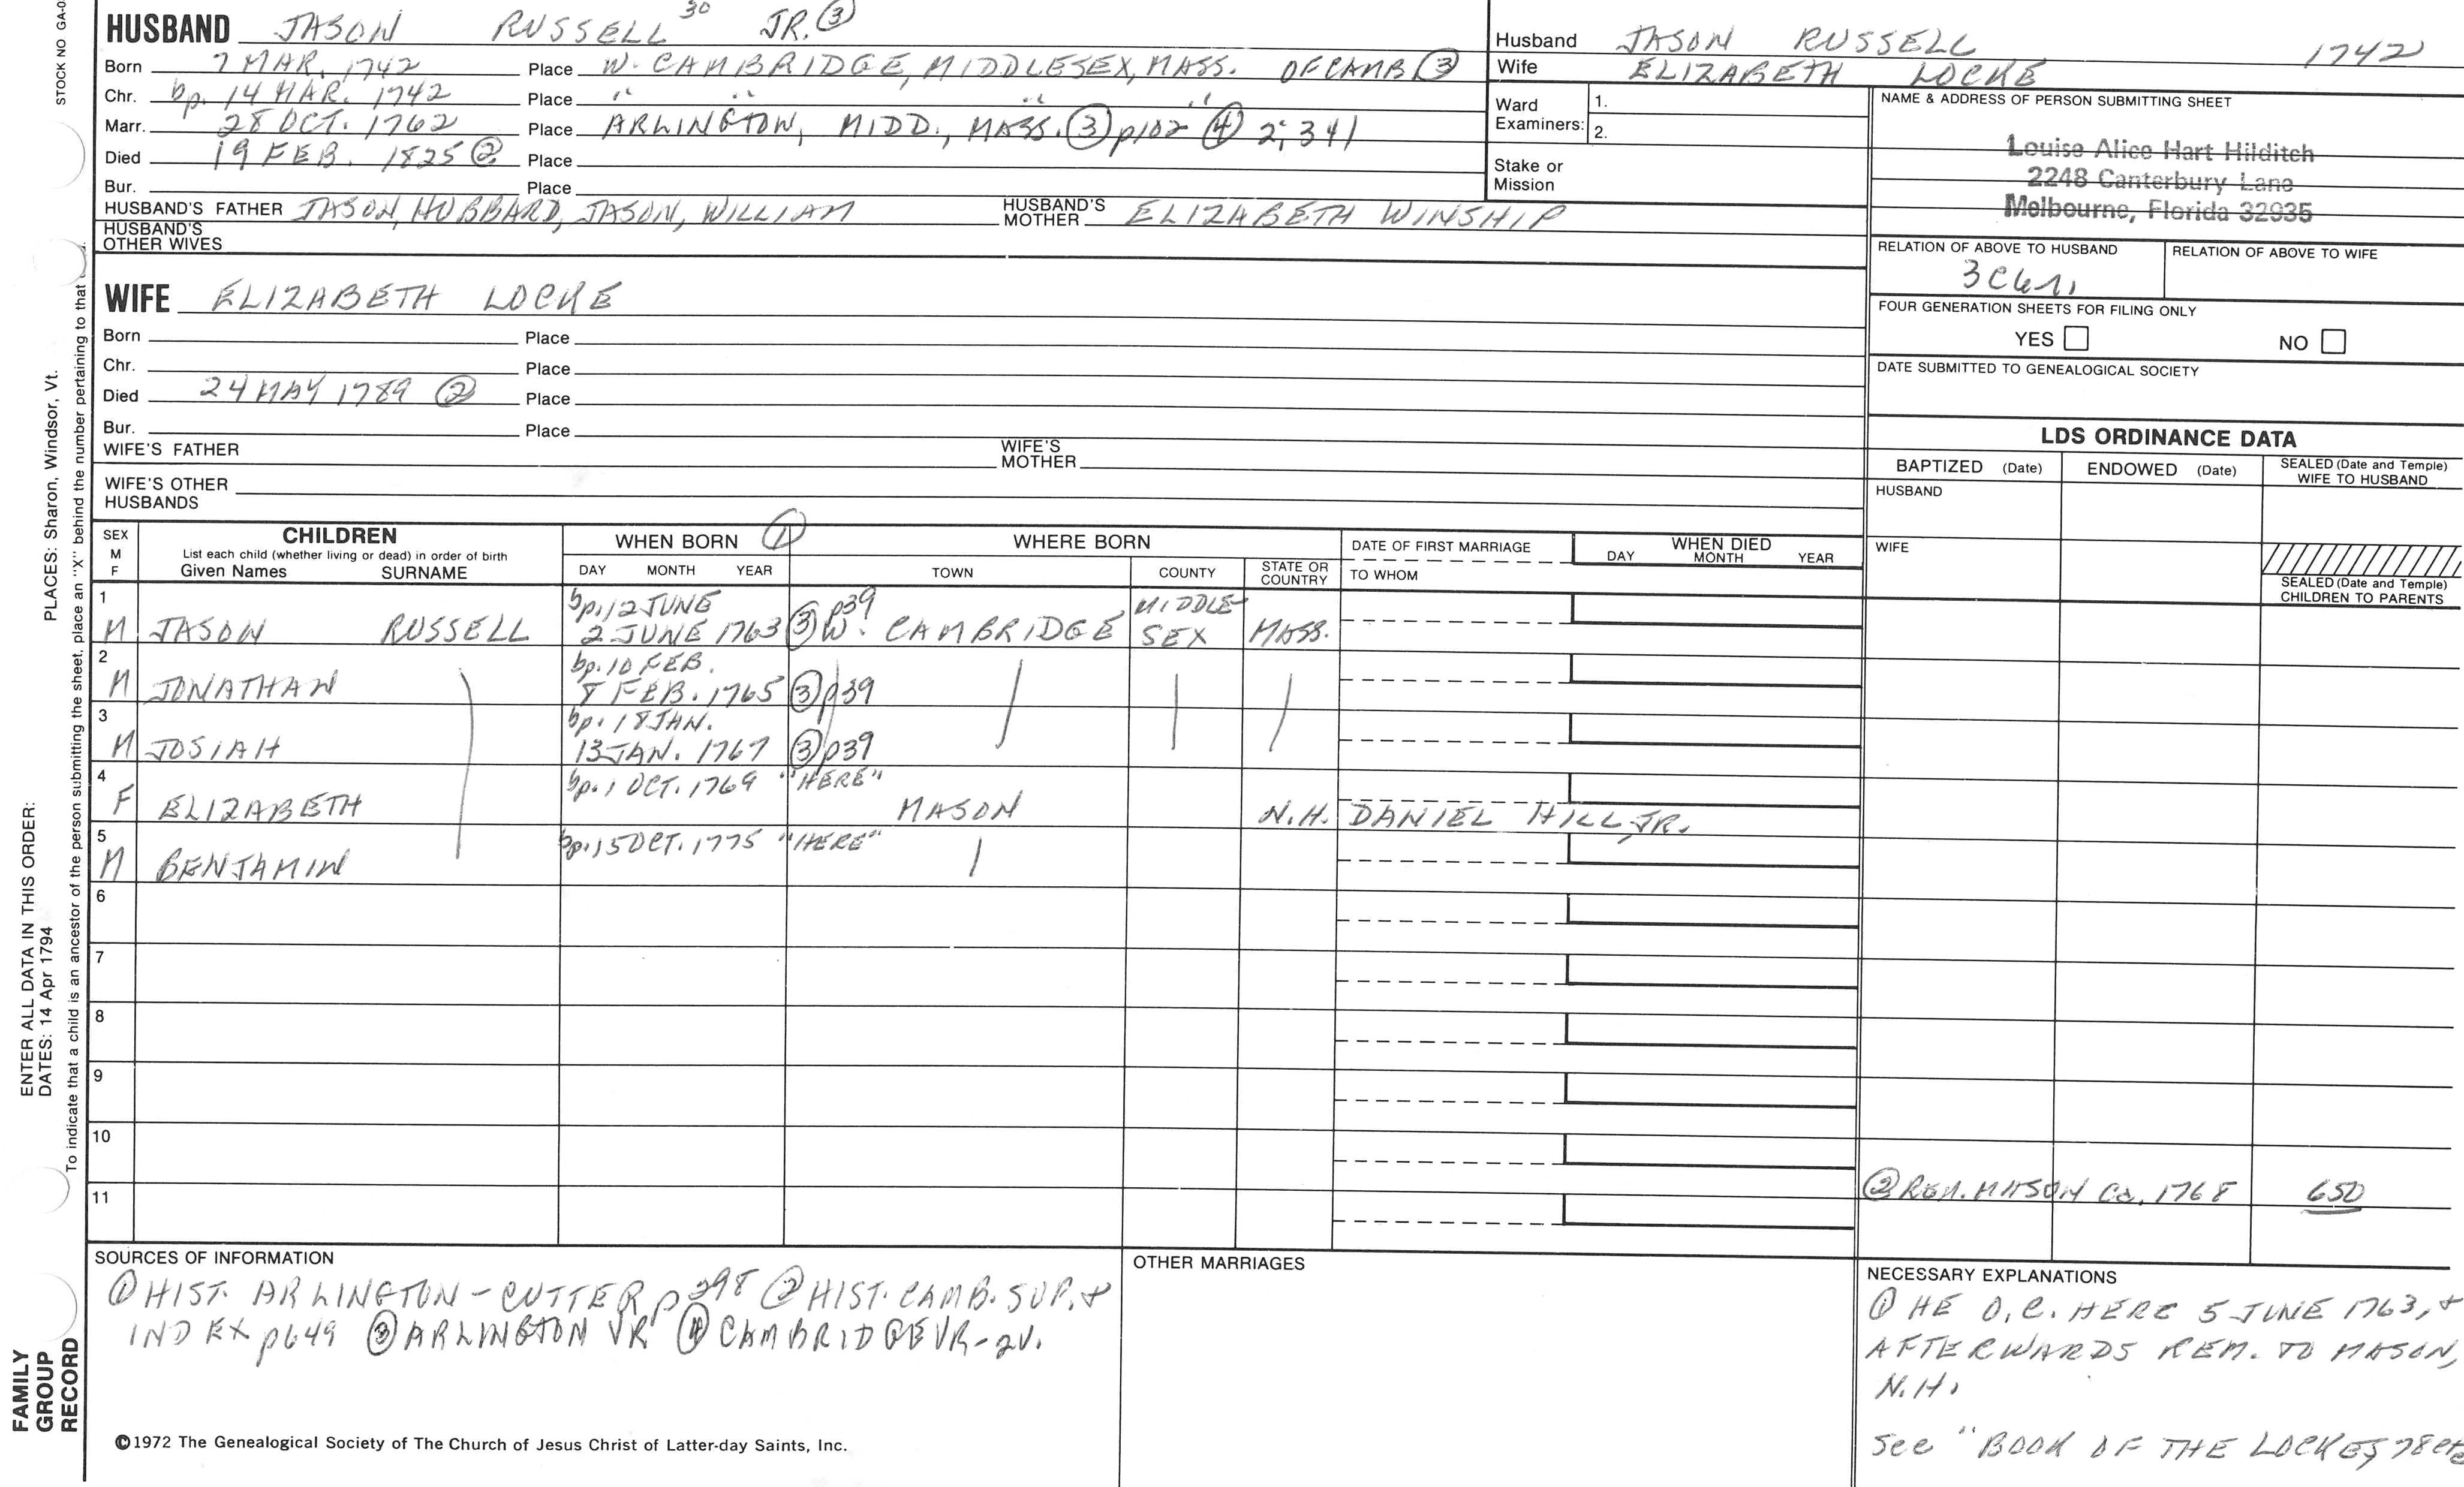 STOCK NO GA-0
HUSBAND JASON RUSSELL 30 JR. ③
Born 7 MAR. 1742 Place W. CAMBRIDGE, MIDDLESEX, MASS. OF CAMB ③
Chr. bp. 14 MAR. 1742 Place " " " "
Marr. 28 OCT. 1762 Place ARLINGTON, MIDD., MASS. ③ p102 ④ 2; 341
Died 19 FEB. 1825 ② Place
Bur. Place
HUSBAND'S FATHER JASON, HUBBARD, JASON, WILLIAM HUSBAND'S MOTHER ELIZABETH WINSHIP
HUSBAND'S OTHER WIVES
Husband JASON RUSSELL 1742
Wife ELIZABETH LOCKE
Ward Examiners: 1.
2.
Stake or Mission
NAME & ADDRESS OF PERSON SUBMITTING SHEET
Louise Alice Hart Hilditch
2248 Canterbury Lane
Melbourne, Florida 32935
RELATION OF ABOVE TO HUSBAND
RELATION OF ABOVE TO WIFE
FOUR GENERATION SHEETS FOR FILING ONLY
YES NO
DATE SUBMITTED TO GENEALOGICAL SOCIETY
WIFE ELIZABETH LOCKE
Born Place
Chr. Place
Died 24 MAY 1789 ② Place
Bur. Place
WIFE'S FATHER WIFE'S MOTHER
WIFE'S OTHER HUSBANDS
LDS ORDINANCE DATA
BAPTIZED (Date) ENDOWED (Date) SEALED (Date and Temple) WIFE TO HUSBAND
HUSBAND
WIFE
SEALED (Date and Temple) CHILDREN TO PARENTS
SEX M F
CHILDREN
List each child (whether living or dead) in order of birth
Given Names SURNAME
WHEN BORN ①
DAY MONTH YEAR
WHERE BORN
TOWN COUNTY STATE OR COUNTRY
DATE OF FIRST MARRIAGE
TO WHOM
WHEN DIED
DAY MONTH YEAR
1 bp. 12 JUNE p39 MIDDLE-
M JASON RUSSELL 2 JUNE 1763 ③ W. CAMBRIDGE SEX MASS.
2 bp. 10 FEB.
M JONATHAN 8 FEB. 1765 ③ p39
3 bp. 18 JAN.
M JOSIAH 13 JAN. 1767 ③ p39
4 bp. 1 OCT. 1769 "HERE"
F ELIZABETH MASON N.H. DANIEL HILL, JR.
5 bp. 15 OCT. 1775 "HERE"
M BENJAMIN
6
7
8
9
10
11
② REM. MASON Ca. 1768 650
SOURCES OF INFORMATION
① HIST. ARLINGTON - CUTTER p 298 ② HIST. CAMB. SUP. &
INDEX p649 ③ ARLINGTON VR ④ CAMBRIDGE VR - 2V.
OTHER MARRIAGES
NECESSARY EXPLANATIONS
① HE O.C. HERE 5 JUNE 1763, &
AFTERWARDS REM. TO MASON,
N.H.
See "BOOK OF THE LOCKES
©1972 The Genealogical Society of The Church of Jesus Christ of Latter-day Saints, Inc.
FAMILY
GROUP
RECORD
ENTER ALL DATA IN THIS ORDER:
DATES: 14 Apr 1794
PLACES: Sharon, Windsor, Vt.
To indicate that a child is an ancestor of the person submitting the sheet, place an "X" behind the number pertaining to that